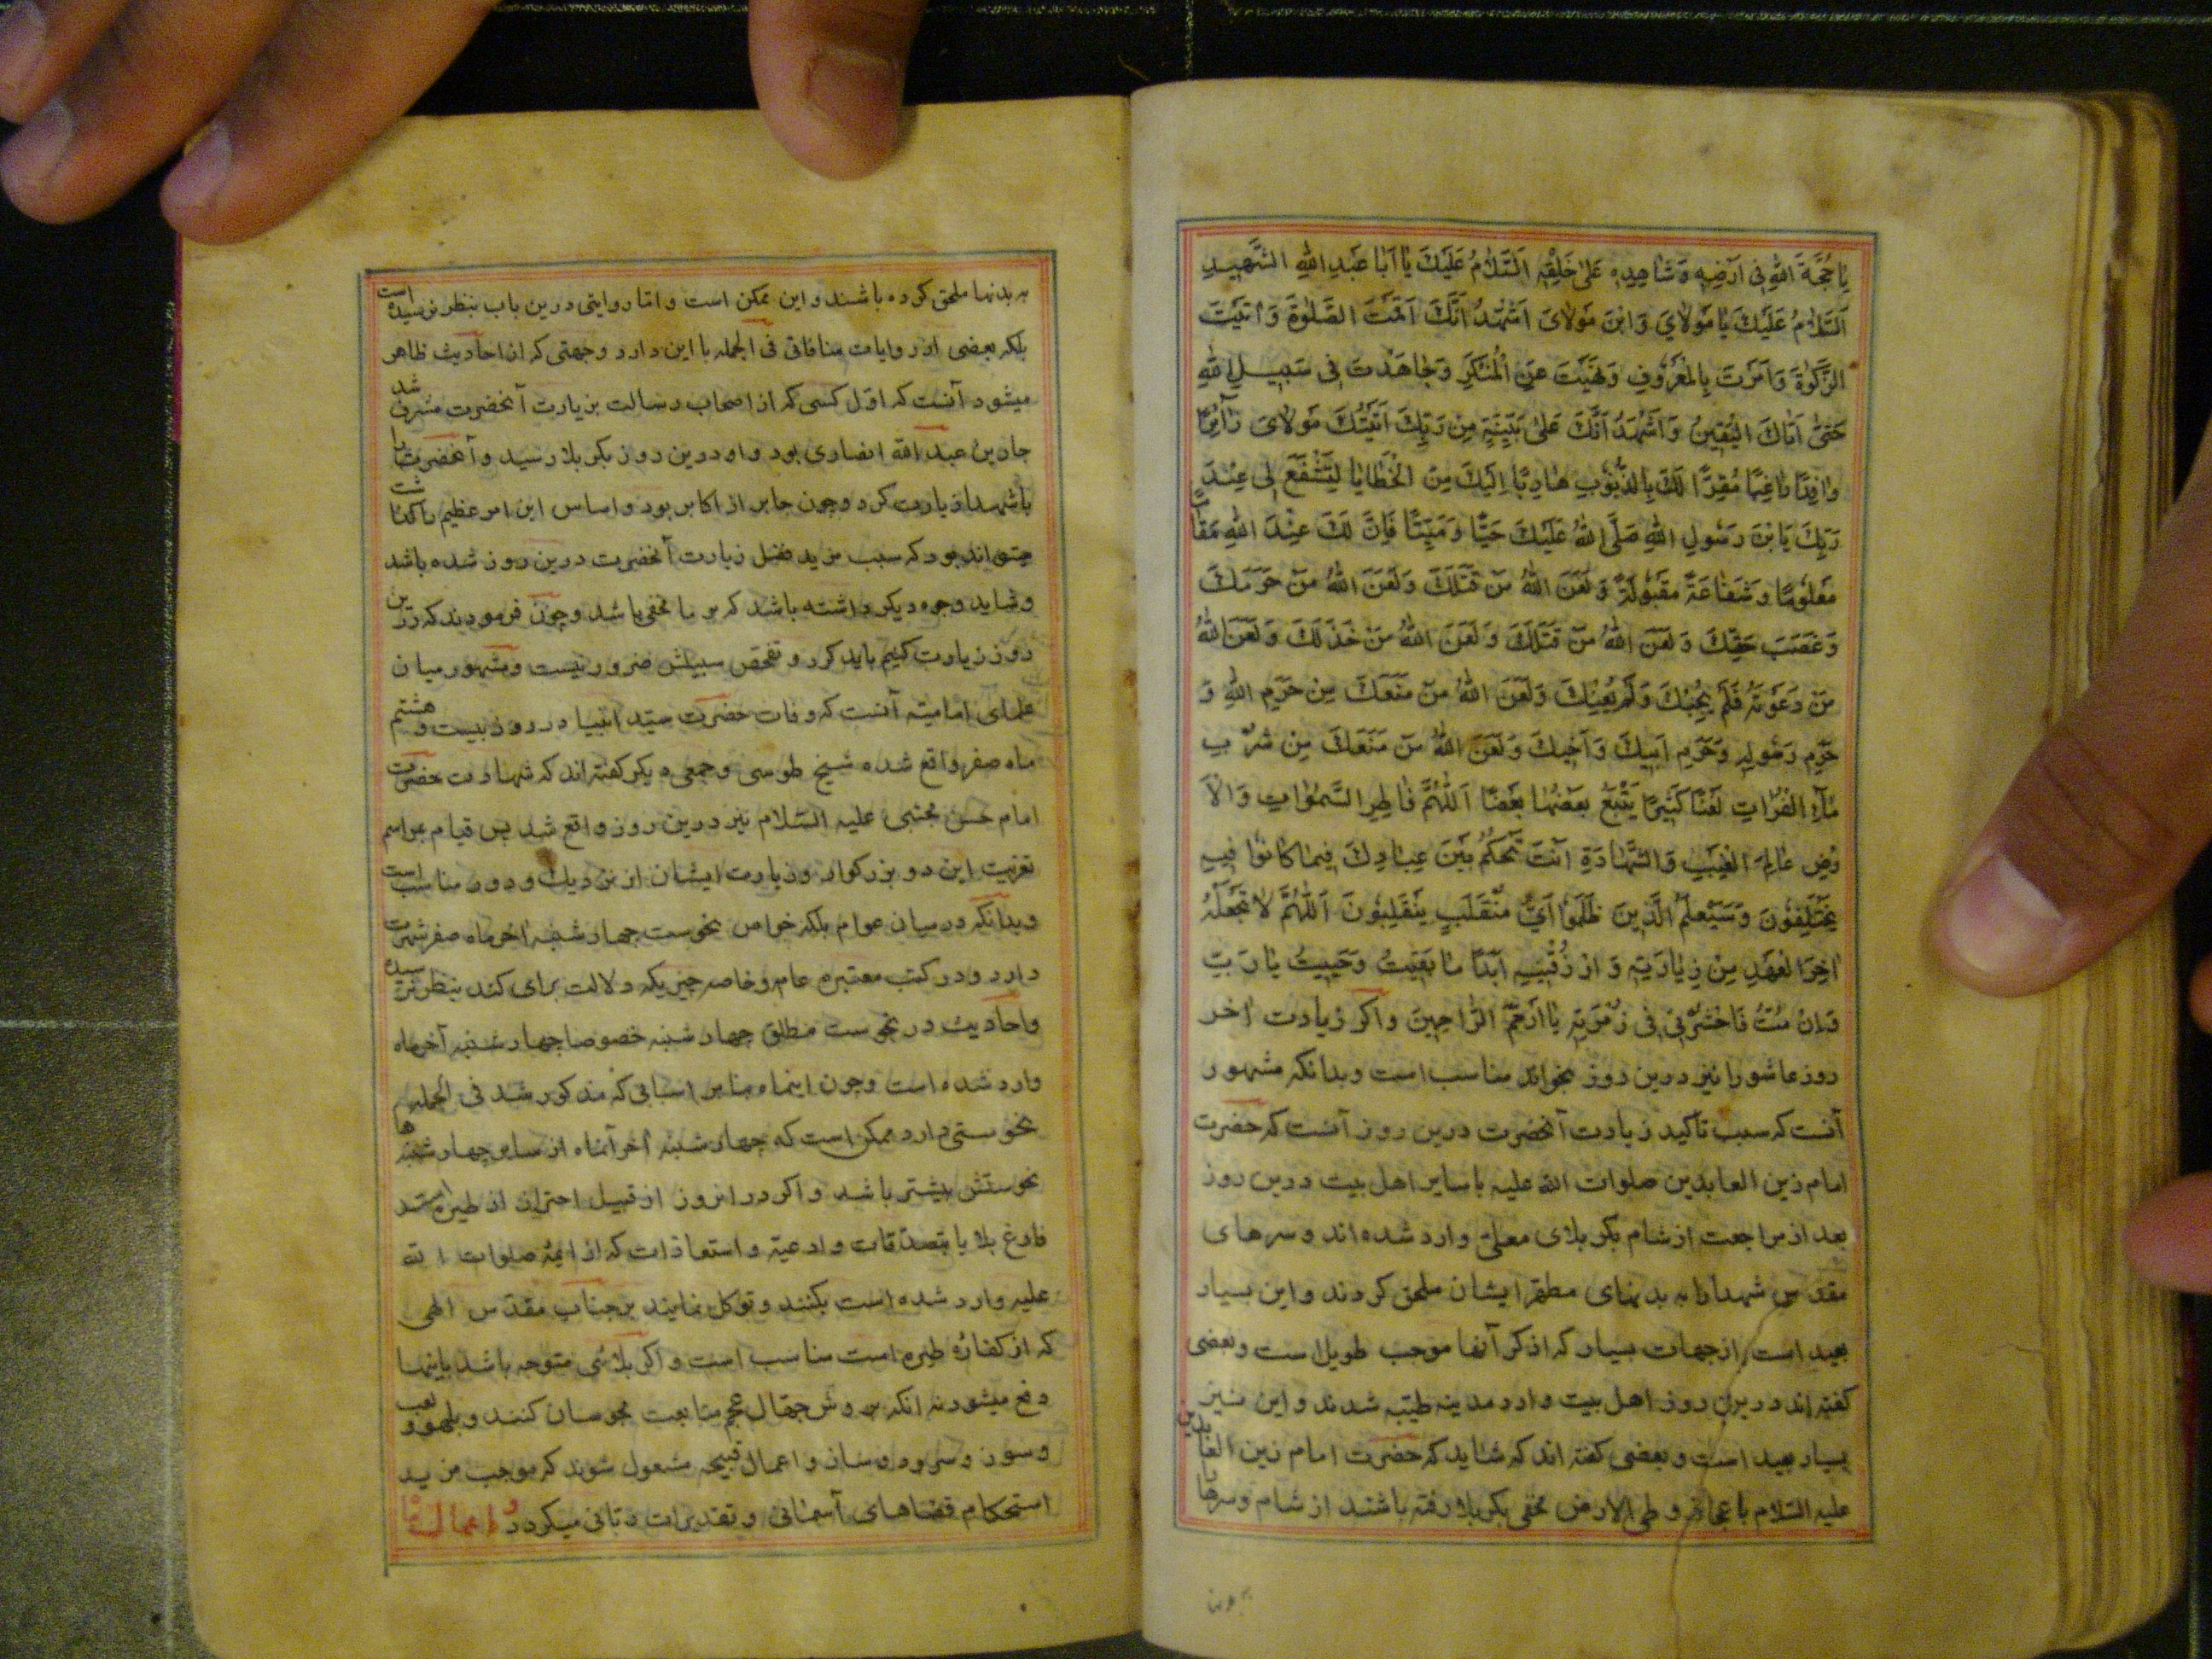 يَا حُجَّةَ اللّٰهِ فِى اَرْضِهِ وَشَاهِدِهِ عَلٰى خَلْقِهِ اَلسَّلٰامُ عَلَيْكَ يٰا اَبٰا عَبْدِ اللّٰهِ الشَّهِيدِ
اَلسَّلٰامُ عَلَيْكَ يٰا مَوْلٰاىَ وَابْنَ مَوْلٰاىَ اَشْهَدُ اَنَّكَ اَقَمْتَ الصَّلٰوةَ وَاٰتَيْتَ
الزَّكٰوةَ وَاَمَرْتَ بِالْمَعْرُوفِ وَنَهَيْتَ عَنِ الْمُنْكَرِ وَجٰاهَدْتَ فِى سَبِيلِ اللّٰهِ
حَتّٰى اَتٰاكَ الْيَقِينُ وَاَشْهَدُ اَنَّكَ عَلٰى بَيِّنَةٍ مِنْ رَبِّكَ اَتَيْتُكَ مَوْلٰاىَ زٰائِرًا
وٰافِدًا رٰاغِبًا مُقِرًّا لَكَ بِالذُّنُوبِ هٰارِبًا اِلَيْكَ مِنَ الْخَطٰايٰا لِتَشْفَعَ لِى عِنْدَ
رَبِّكَ يَابْنَ رَسُولِ اللّٰهِ صَلَّى اللّٰهُ عَلَيْكَ حَيًّا وَمَيِّتًا فَاِنَّ لَكَ عِنْدَ اللّٰهِ مَقٰامًا
مَعْلُومًا وَشَفٰاعَةً مَقْبُولَةً وَلَعَنَ اللّٰهُ مَنْ قَتَلَكَ وَلَعَنَ اللّٰهُ مَنْ حَرَمَكَ
وَغَصَبَ حَقَّكَ وَلَعَنَ اللّٰهُ مَنْ قَتَلَكَ وَلَعَنَ اللّٰهُ مَنْ خَذَلَكَ وَلَعَنَ اللّٰهُ
مَنْ دَعَوْتَهُ فَلَمْ يُجِبْكَ وَلَمْ يُعِنْكَ وَلَعَنَ اللّٰهُ مَنْ مَنَعَكَ مِنْ حَرَمِ اللّٰهِ وَ
حَرَمِ رَسُولِهِ وَحَرَمِ اَبِيكَ وَاَخِيكَ وَلَعَنَ اللّٰهُ مَنْ مَنَعَكَ مِنْ شُرْبِ
مٰاءِ الْفُرٰاتِ لَعْنًا كَثِيرًا يَتْبَعُ بَعْضُهٰا بَعْضًا اَللّٰهُمَّ فٰاطِرَ السَّمٰوٰاتِ وَالْاَ
رْضِ عٰالِمَ الْغَيْبِ وَالشَّهٰادَةِ اَنْتَ تَحْكُمُ بَيْنَ عِبٰادِكَ فِيمٰا كٰانُوا فِيهِ
يَخْتَلِفُونَ وَسَيَعْلَمُ الَّذِينَ ظَلَمُوا اَيَّ مُنْقَلَبٍ يَنْقَلِبُونَ اَللّٰهُمَّ لٰا تَجْعَلْهُ
اٰخِرَ الْعَهْدِ مِنْ زِيٰارَتِهِ وَارْزُقْنِيهِ اَبَدًا مٰا بَقِيتُ وَحَيِيتُ يٰا رَبِّ
وَاِنْ مُتُّ فَاحْشُرْنِى فِى زُمْرَتِهِ يٰا اَرْحَمَ الرّٰاحِمِينَ واكر زيارت اخر
روز عاشورا نيز درين روز بخواند مناسب است وبدانكه مشهور
آنست كه سبب تاكيد زيارت آنحضرت درين روز آنست كه حضرت
امام زين العابدين صلوات الله عليه با ساير اهل بيت درين روز
بعد از مراجعت از شام بكربلاى معلى وارد شده اند وسرهاى
مقدس شهدا را به بدنهاى مطهر ايشان ملحق كردند واين بسيار
بعيد است از جهات بسيار كه از ذكر آنها موجب طويل است وبعضى
كفته اند درين روز اهل بيت وارد مدينه طيبه شدند واين نيز
بسيار بعيد است وبعضى كفته اند كه شايد كه حضرت امام زين العابدين
عليه السلام باعجاز وطى الارض مخفى بكربلا رفته باشند از شام وسرها
به بدنها ملحق كرده باشند واين ممكن است واما روايتى درين باب بنظر نرسيده است
بلكه بعضى از روايات منافاتى فى الجمله با اين دارد وجهتى كه از احاديث ظاهر
ميشود آنست كه اول كسى كه از اصحاب رسالت بزيارت آنحضرت مشرف شد
جابر بن عبد الله انصارى بود واو درين روز بكربلا رسيد وآنحضرت را
با شهدا زيارت كرد وچون جابر از اكابر بود واساس اين امر عظيم را كذاشت
ميتواند بود كه سبب مزيد فضل زيارت آنحضرت درين روز شده باشد
وشايد وجوه ديكر داشته باشد كه بر ما مخفى باشد وچون فرمودند كه درين
روز زيارت كنيم بايد كرد وتفحص سببش ضرور نيست ومشهور ميان
علماى اماميه آنست كه وفات حضرت سيد انبيا در روز بيست و هشتم
ماه صفر واقع شده شيخ طوسى وجمعى ديكر كفته اند كه شهادت حضرت
امام حسن مجتبى عليه السلام نيز درين روز واقع شد پس قيام بمراسم
تعزيت اين دو بزركوار وزيارت ايشان از نزديك ودور مناسب است
وبدانكه در ميان عوام بلكه خواص نحوست چهار شنبه اخر ماه صفر شهرت
دارد ودر كتب معتبره عامه وخاصه چيزيكه دلالت براى كند بنظر نرسيده
واحاديث در نحوست مطلق چهار شنبه خصوصا چهار شنبه آخر ماه
وارد شده است وچون اينماه بنابر اسبابى كه مذكور شد فى الجمله
نحوستى دارد ممكن است كه چهار شنبه آخر آنماه از ساير چهار شنبه ها
نحوستش بيشتر باشد واكر در انروز از قبيل احتراز از طيره
بلا با بتصدقات وادعيه واستعاذات كه از ائمه صلوات الله
عليه وارد شده است بكنند وتوكل نمايند بر جناب مقدس الهى
كه از كفاره طيره است مناسب است واكر بلائى متوجه باشد باينها
دفع ميشود نه انكه بروش جهال عجم متابعت مجوسان كنند وبلهو و لعب
وسور وسرود وسان واعمال قبيحه مشغول شوند كه موجب مزيد
استحكام قضاهاى آسمانى وتقديرات ربانى ميكردد و اعمال